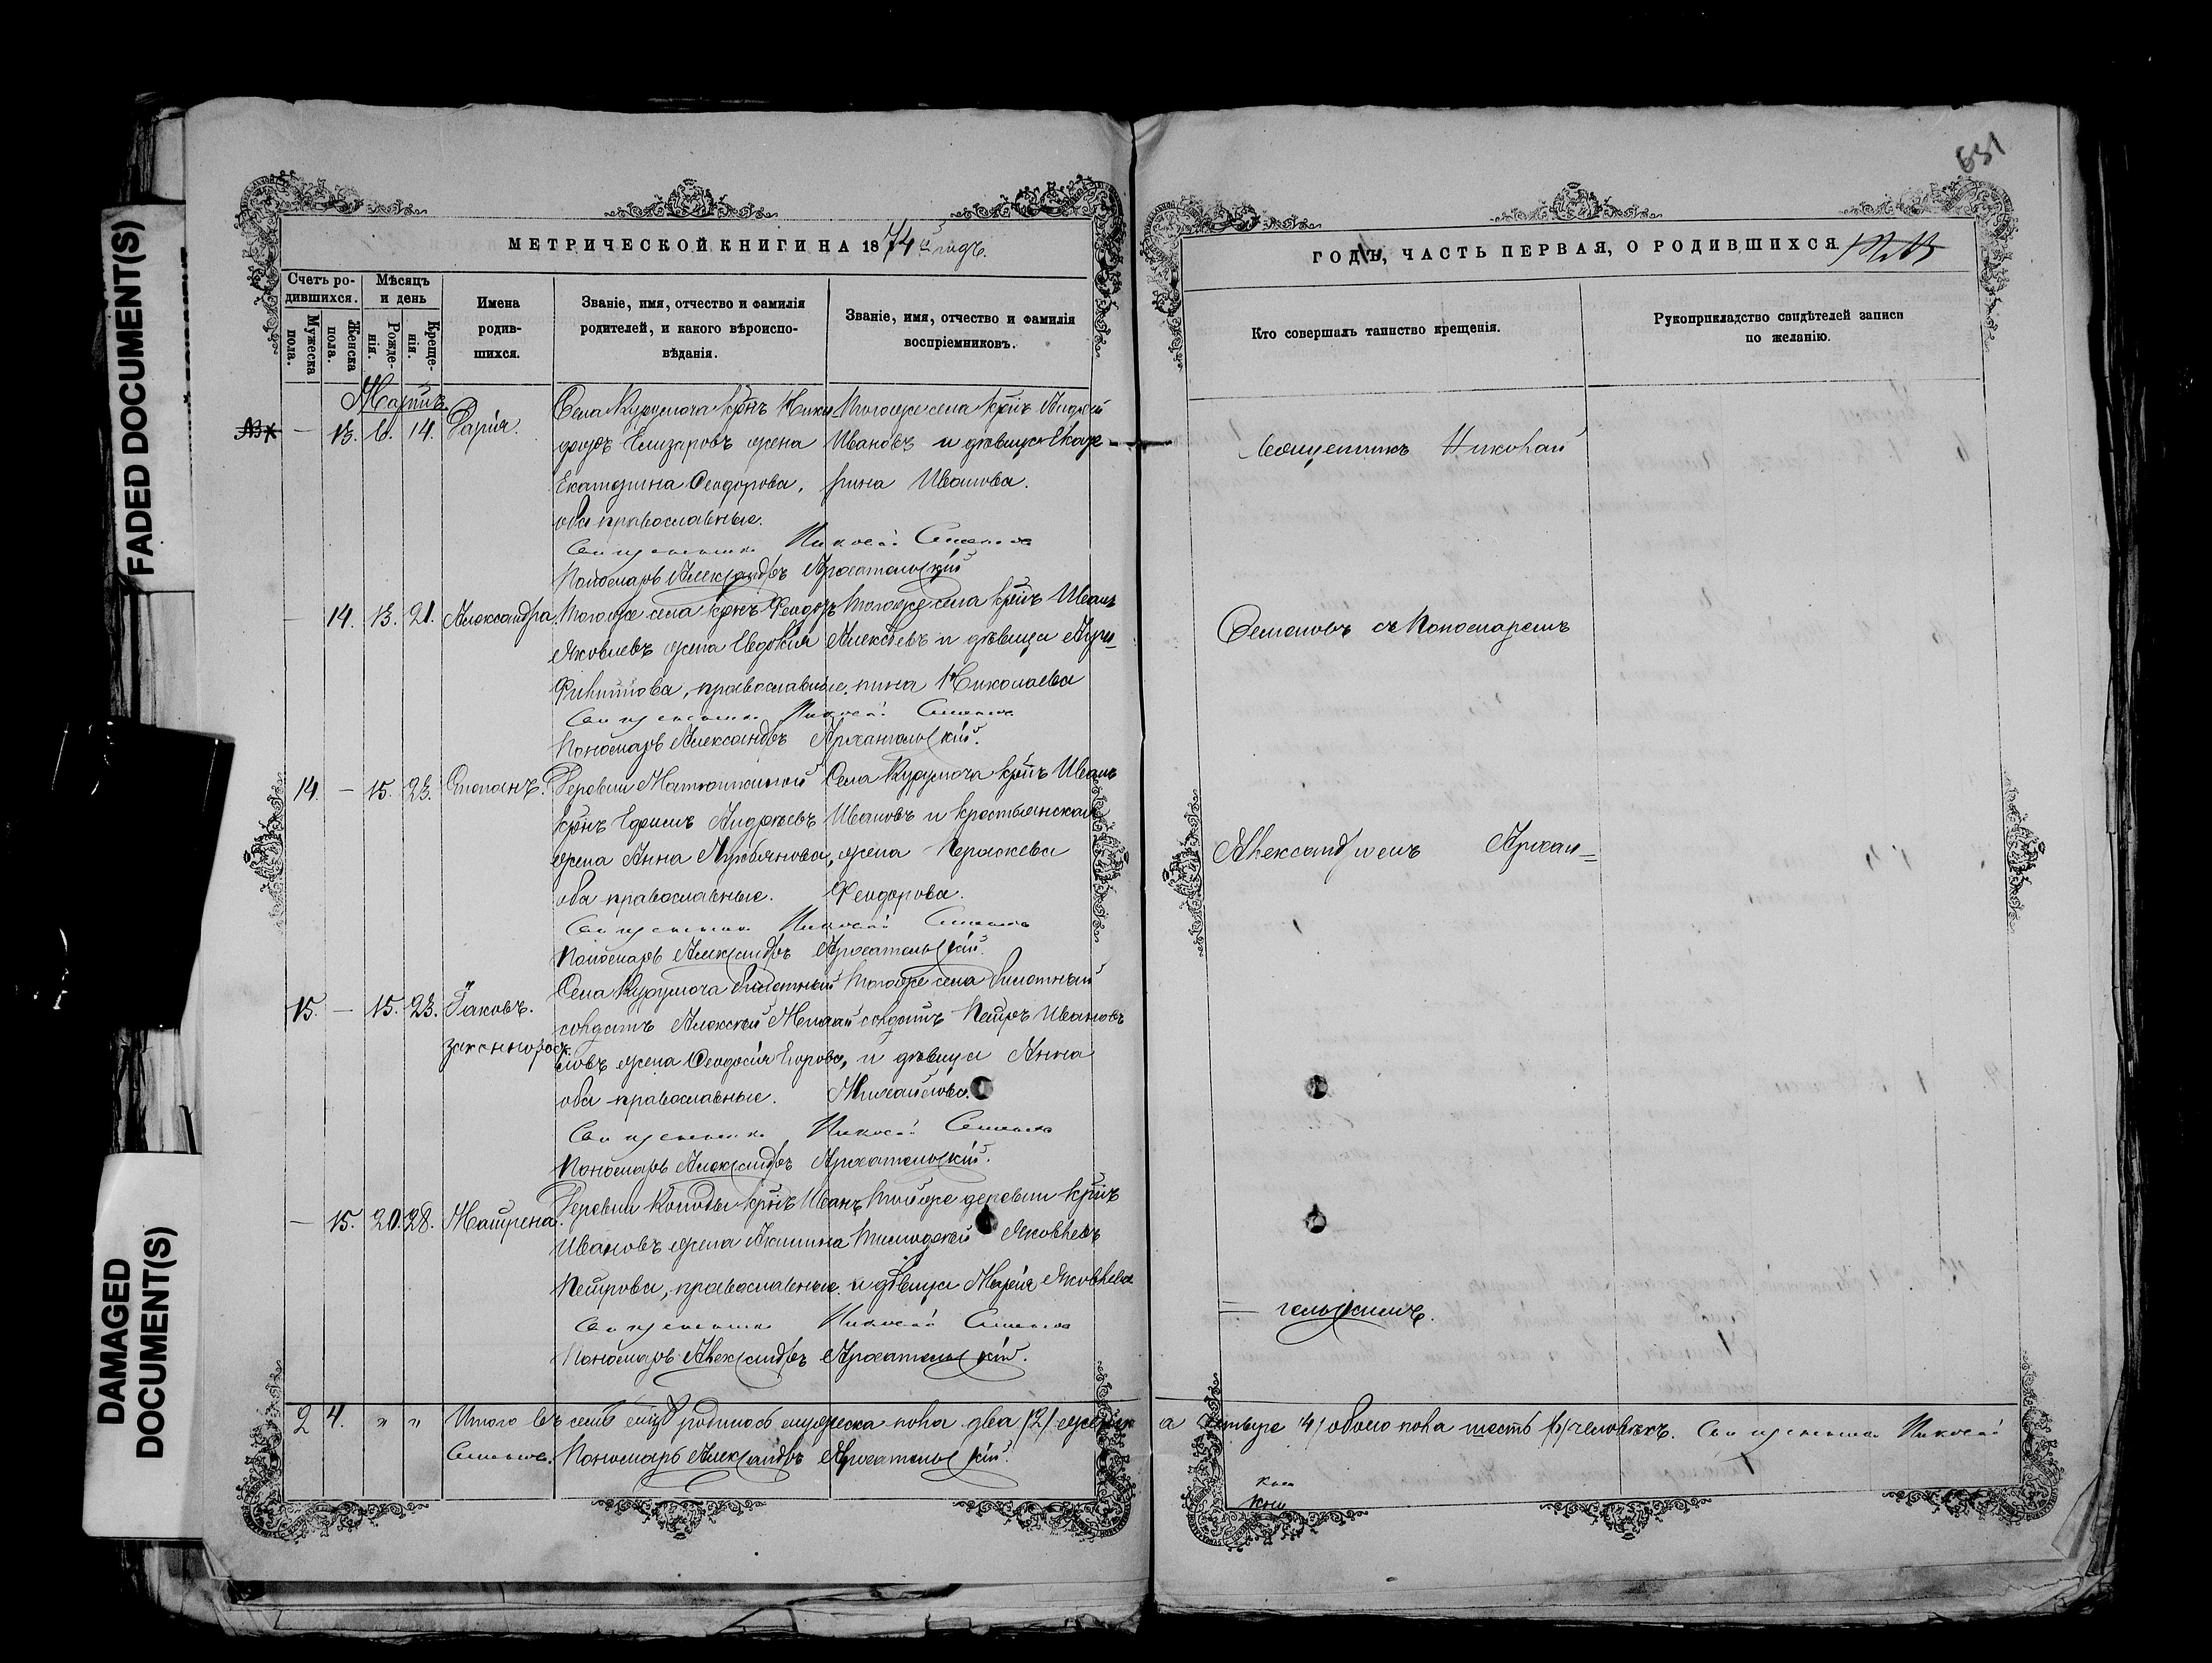 FADED DOCUMENT(S)
DAMAGED
DOCUMENT(S)
631
МЕТРИЧЕСКОЙ КНИГИ НА 1874 й годъ.
Счетъ ро-
дившихся.
Мужеска
пола.
Женска
пола.
Мѣсяцъ
и день
Рожде-
нія.
Креще-
нія.
Имена
родив-
шихся.
Званіе, имя, отчество и фамилія
родителей, и какого вѣроиспо-
вѣданія.
Званіе, имя, отчество и фамилія
воспріемниковъ.
ГОДЪ, ЧАСТЬ ПЕРВАЯ, О РОДИВШИХСЯ
Кто совершалъ таинство крещенія.
Рукоприкладство свидѣтелей записи
по желанію.
Мартъ
— 13. 6. 14. Дарія.
Села Курумоча крнъ Ники-
форъ Елизаровъ жена
Екатерина Ѳеодорова,
оба православные.
Тогоже села крнъ Андрей
Ивановъ и дѣвица Екате-
рина Иванова.
Священникъ Николай Семеновъ
Пономарь Александръ Архангельскій
— 14. 13. 21. Александра.
Тогоже села крнъ Ѳеодоръ
Яковлевъ жена Евдокія
Филиппова, православные.
Тогоже села крнъ Иванъ
Алексѣевъ и дѣвица Агри-
пина Николаева
Священникъ Николай Семеновъ
Пономарь Александръ Архангельскій.
14. — 15. 23. Стефанъ.
Деревни
крнъ Ефимъ Андреевъ
жена Анна Лукьянова,
оба православные.
Села Курумоча крнъ Иванъ
Ивановъ и крестьянская
жена Параскева
Ѳеодорова.
Священникъ Николай Семеновъ
Пономарь Александръ Архангельскій.
15. — 15. 23. Іаковъ.
законнорож.
Села Курумоча билетный
солдатъ Алексѣй Михай-
ловъ жена Ѳеодосія Егорова,
оба православные.
Тогоже села билетный
солдатъ Петръ Ивановъ
и дѣвица Анна
Михайлова.
Священникъ Николай Семеновъ
Пономарь Александръ Архангельскій.
— 15. 20. 28. Матрена.
Деревни крнъ Иванъ
Ивановъ жена Акилина
Петрова, православные.
Тойже деревни крнъ
Тимофей Яковлевъ
и дѣвица Марія Яковлева
Священникъ Николай Семеновъ
Пономарь Александръ Архангельскій.
Священникъ Николай
Семеновъ съ Пономаремъ
Александромъ Архан=
= гельскимъ.
2 4. " " Итого въ семъ м-цѣ родилось мужеска пола два /2/ женска четыре /4/ обоего пола шесть /6/ человѣкъ. Священникъ Николай
Семеновъ. Пономарь Александръ Архангельскій.